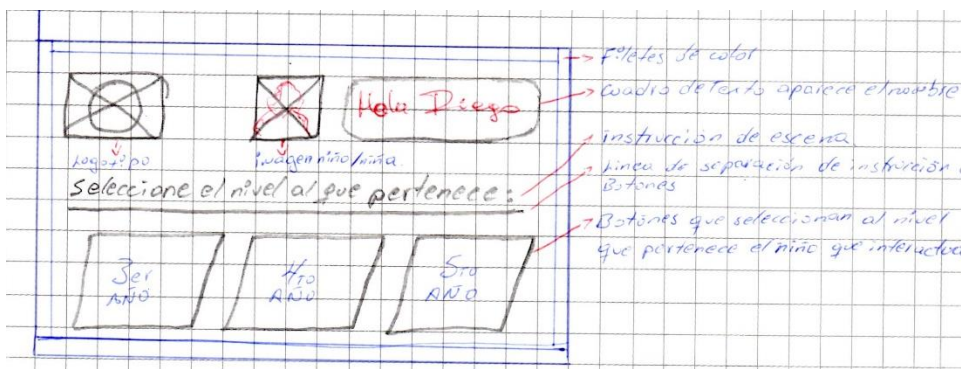 Filetes de color
Cuadro de texto aparece el nombre
Hola Diego
instrucción de escena
Logotipo
imagen niño/niña
Linea de separación de instrucción
Botones
Seleccione el nivel al que pertenece:
Botones que seleccionan al nivel
que pertenece el niño que interactua
3er
AÑO
4TO
AÑO
5TO
AÑO